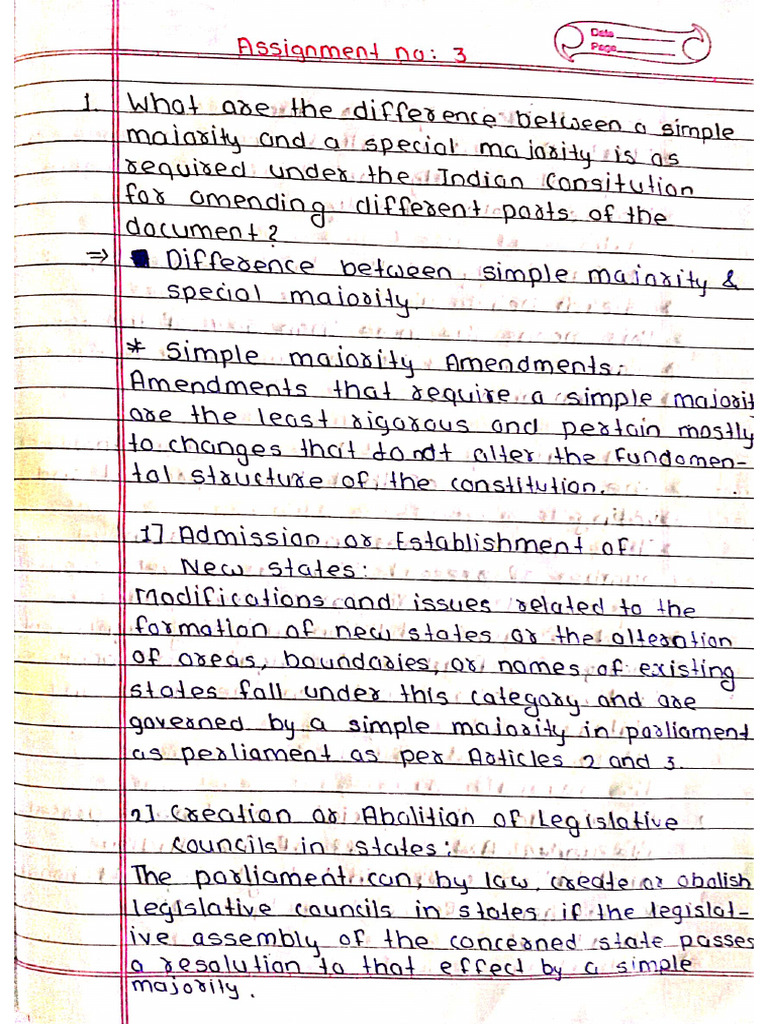 Assignment no: 3
Date
Page
1. What are the difference between a simple
majority and a special majority is as
required under the Indian Consitution
for amending different parts of the
document?
⇒ Difference between simple majority &
special majority.
* Simple majority Amendments:
Amendments that require a simple majorit
are the least rigorous and pertain mostly
to changes that dondt alter the Fundamen-
tal structure of the constitution.
1] Admission or Establishment of
New states:
Modifications and issues related to the
formation of new states or the alteration
of areas, boundaries, or names, of existing
states fall under this category and are
governed by a simple majority in parliament
as perliament as per Articles 2 and 3.
2] Creation or Abolition of Legislative
councils in states:
The parliament can, by law, create or abolish
legislative councils in states if the legislat-
ive assembly of the concerned state passes
a resolution to that effect by a simple
majority.